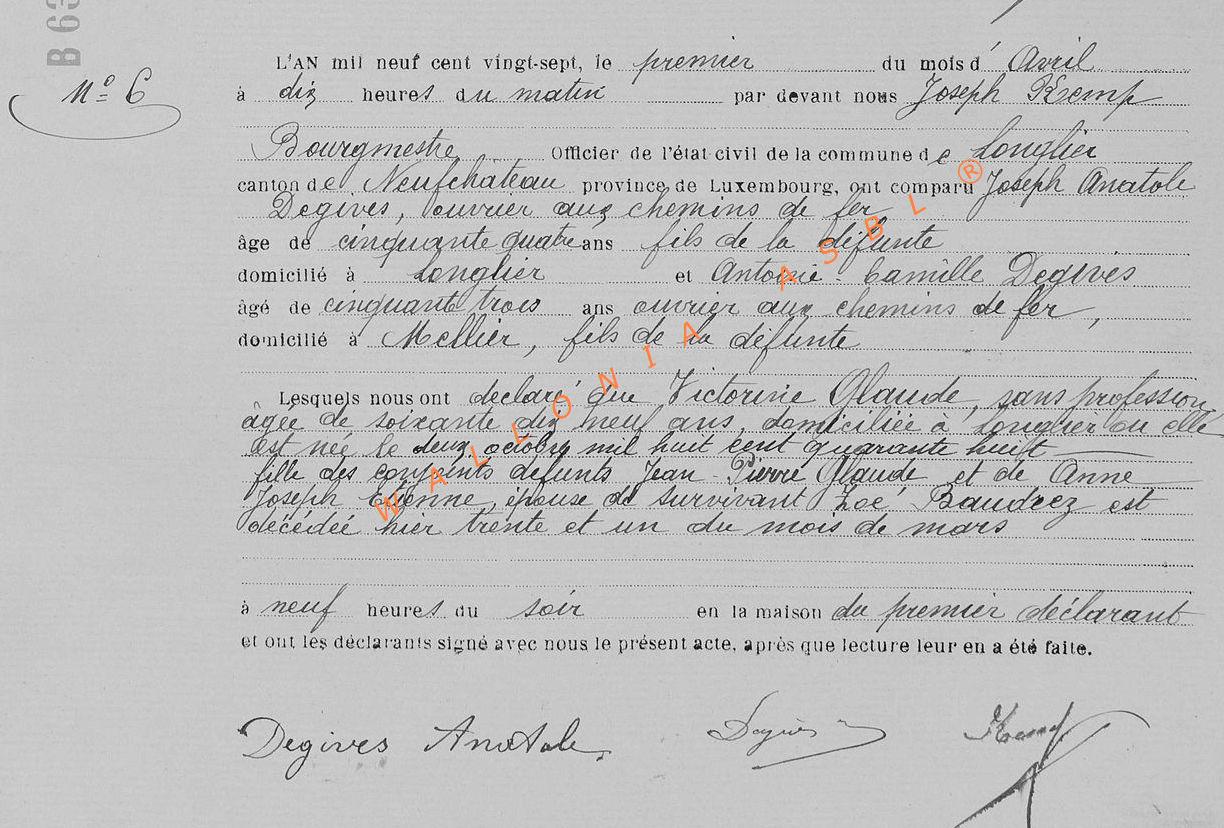 B 63
N° 6
L'AN mil neuf cent vingt-sept, le premier du mois d' Avril
à dix heures du matin par devant nous Joseph Kemp
Bourgmestre Officier de l'état civil de la commune de Longlier
canton de Neufchateau province de Luxembourg, ont comparu Joseph Anatole
Degives, ouvrier aux chemins de fer
âge de cinquante quatre ans fils de la défunte
domicilié à Longlier et Antoine Camille Degives
âgé de cinquante trois ans ouvrier aux chemins de fer,
domicilié à Mellier, fils de la défunte
Lesquels nous ont déclaré que Victorine Glaude, sans profession
âgée de soixante dix neuf ans, domiciliée à Longlier où elle
est née le deux octobre mil huit cent quarante huit
fille des conjoints défunts Jean Pierre Glaude et de Anne
Joseph Etienne, épouse de survivant Zoé Baudrez est
décédée hier trente et un du mois de mars
à neuf heures du soir en la maison du premier déclarant
et ont les déclarants signé avec nous le présent acte, après que lecture leur en a été faite.
Degives Anatole Degives Kemp
WALLONIA ASBL ®